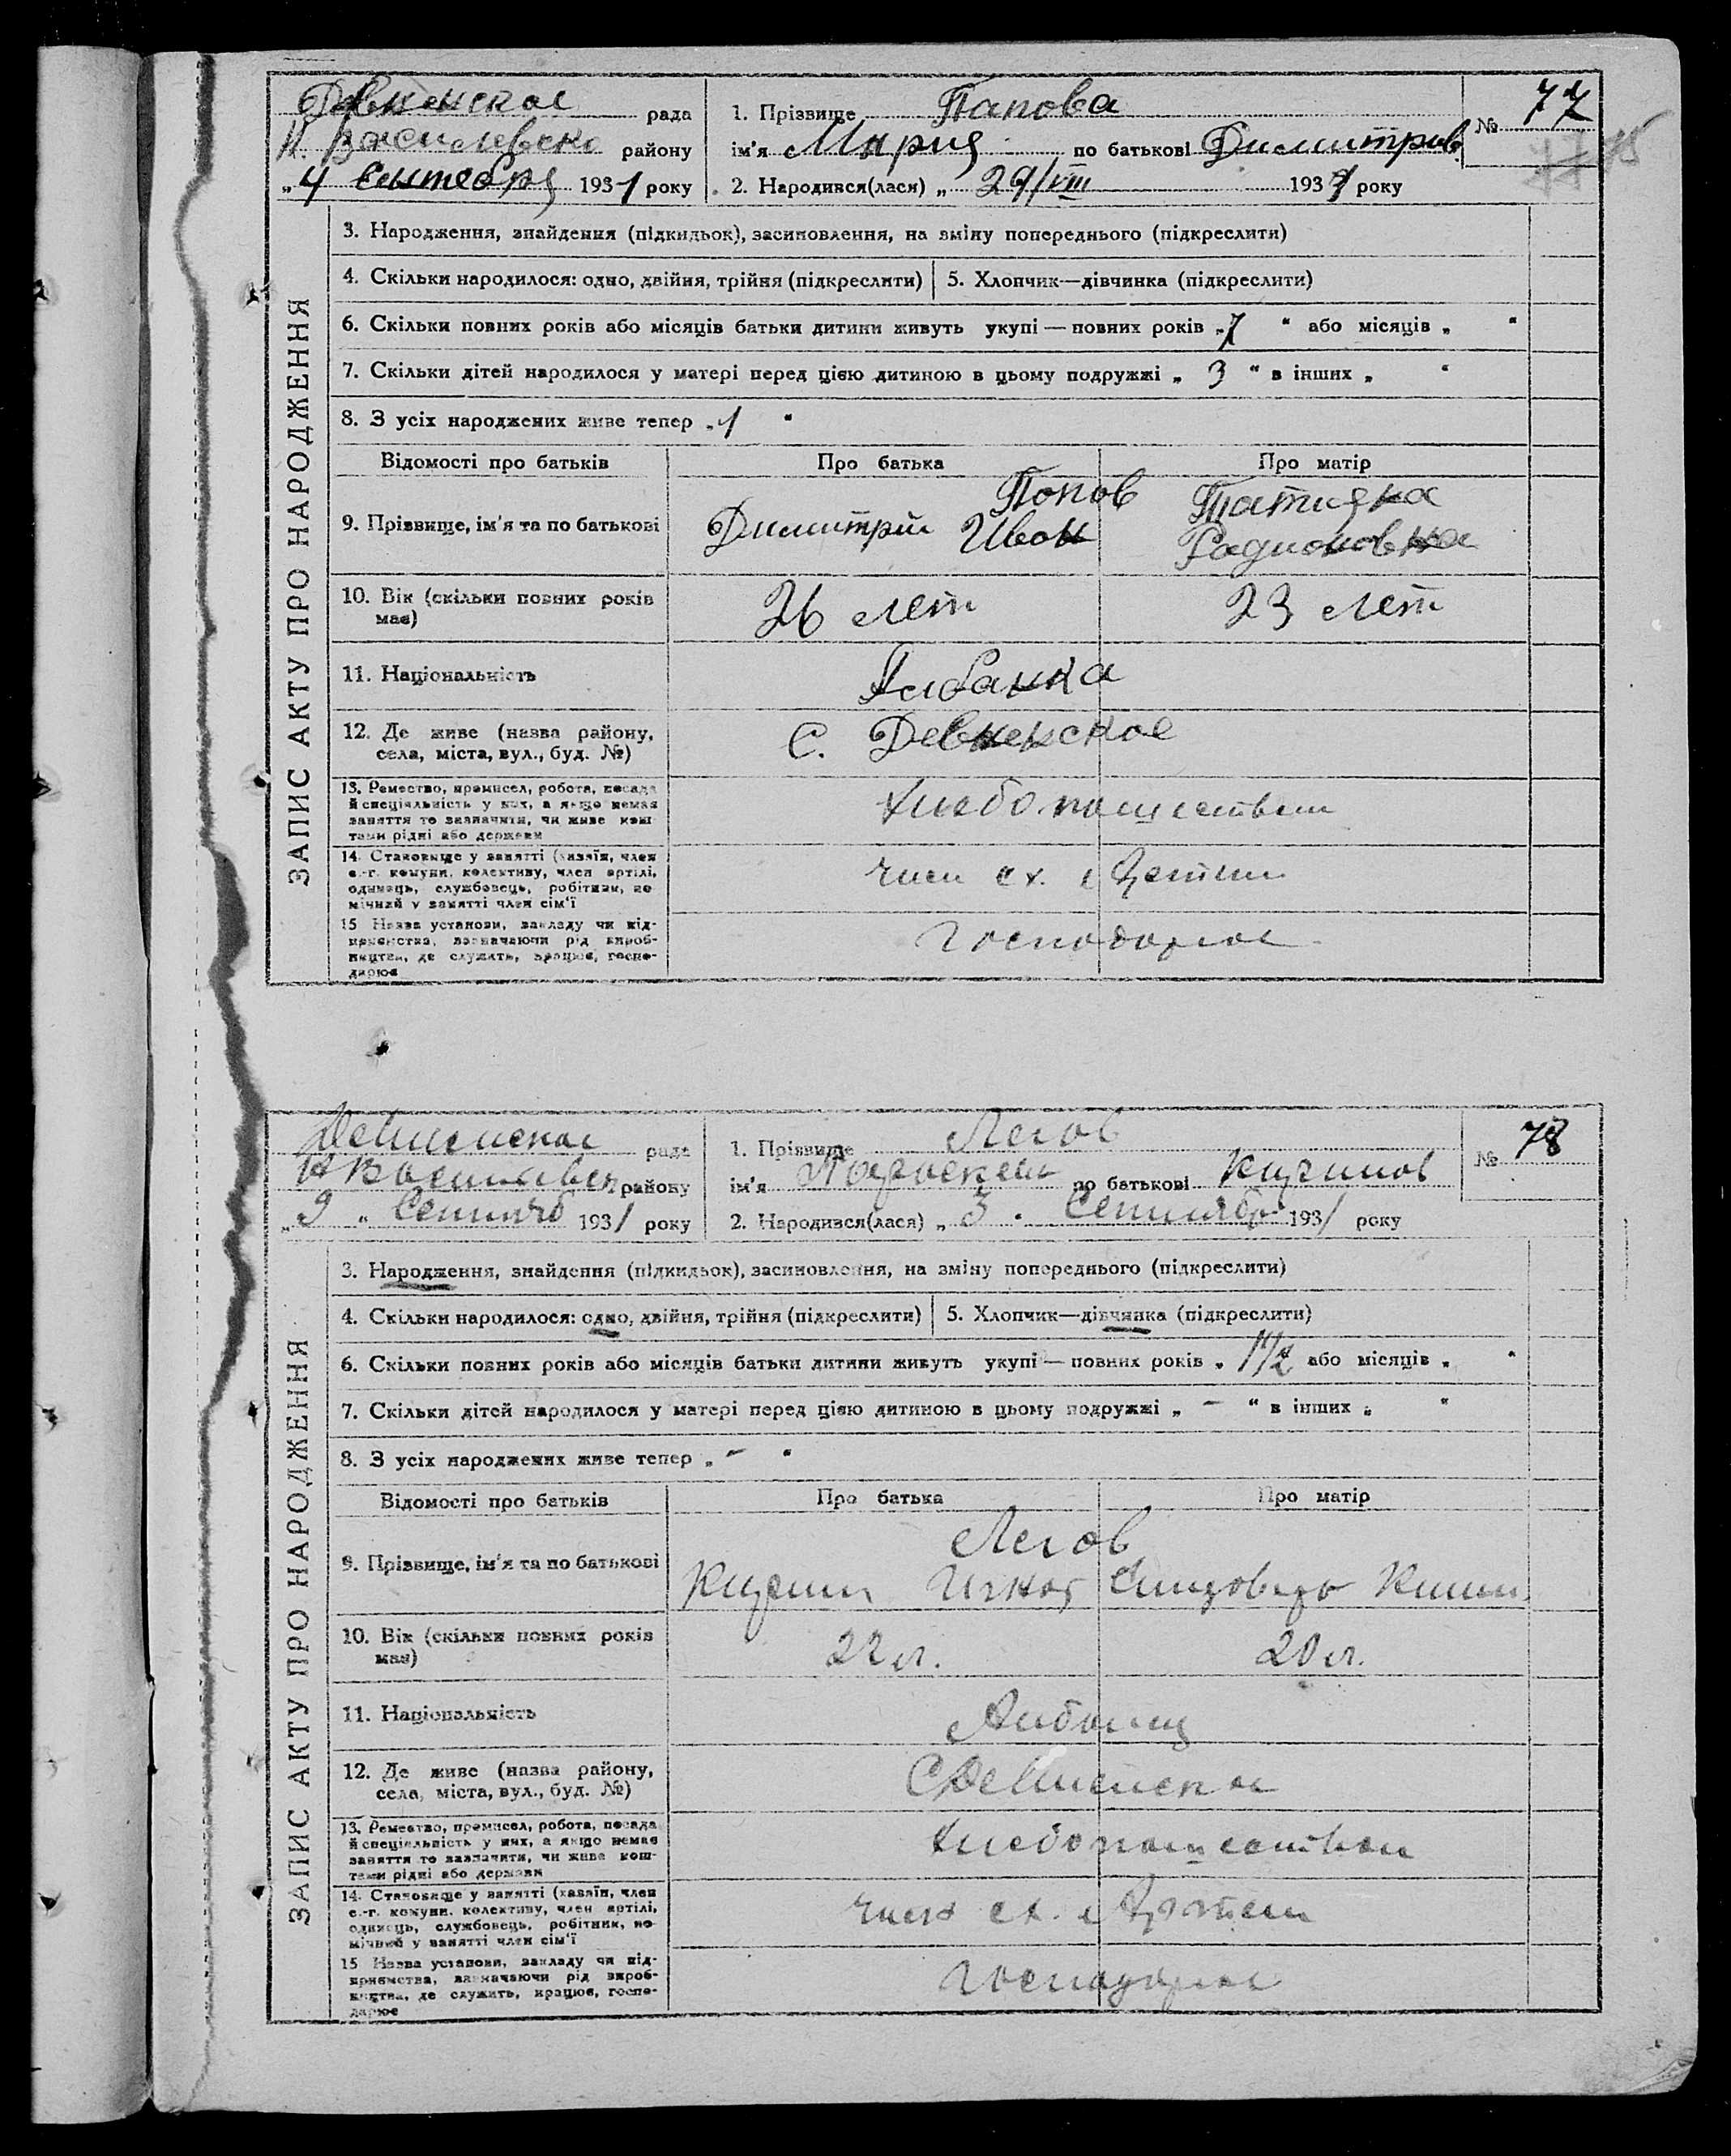 Девненское рада
Н. Василевско району
„4 Сентебря 1931 року
1. Прізвище Папова
ім'я Мария по батькові Димитров.
2. Народився(лася) „ 29/VIII 1931 року
№ 77
15
ЗАПИС АКТУ ПРО НАРОДЖЕННЯ
3. Народження, знайдення (підкидьок), засиновлення, на зміну попереднього (підкреслити)
4. Скільки народилося: одно, двійня, трійня (підкреслити) 5. Хлопчик—дівчинка (підкреслити)
6. Скільки повних років або місяців батьки дитини живуть укупі — повних років „7 “ або місяців „ “
7. Скільки дітей народилося у матері перед цією дитиною в цьому подружжі „ 3 “ в інших „ “
8. З усіх народжених живе тепер „1 “
Відомості про батьків Про батька Про матір
9. Прізвище, ім'я та по батькові
Попов
Димитрий Иван
Татияна
Радионовна
10. Вік (скільки повних років
має)
26 лет 23 лет
11. Національність Албанка
12. Де живе (назва району,
села, міста, вул., буд. №)
С. Девненское
13. Ремество, промисел, робота, посада
й спеціяльність у них, а якщо немає
заняття то зазначити, чи живе кош-
тами рідні або держави
Хлебопашеством
14. Становище у занятті (хазяїн, член
с.-г. комуни, колективу, член артілі,
одинець, службовець, робітник, по-
мічний у занятті член сім'ї
член сх. Артели
15 Назва установи, закладу чи під-
приємства, зазначаючи рід вироб-
ництва, де служить, працює, госпо-
дарює
ЗАПИС АКТУ ПРО НАРОДЖЕННЯ
рада
району
„ 9 „ 1931 року
1. Прізвище Легов
ім'я по батькові Кирилов
2. Народився(лася) „ 3 “ Сентябр 1931 року
№ 78
3. Народження, знайдення (підкидьок), засиновлення, на зміну попереднього (підкреслити)
4. Скільки народилося: одно, двійня, трійня (підкреслити) 5. Хлопчик—дівчинка (підкреслити)
6. Скільки повних років або місяців батьки дитини живуть укупі — повних років „ 1 1/2 або місяців „ “
7. Скільки дітей народилося у матері перед цією дитиною в цьому подружжі „ – “ в інших „ “
8. З усіх народжених живе тепер „ – “
Відомості про батьків Про батька Про матір
9. Прізвище, ім'я та по батькові
Легов
Кирил Игнат
10. Вік (скільки повних років
має)
22 л. 20 л.
11. Національність
12. Де живе (назва району,
села, міста, вул., буд. №)
13. Ремество, промисел, робота, посада
й спеціяльність у них, а якщо немає
заняття то зазначити, чи живе кош-
тами рідні або держави
Хлебопашеством
14. Становище у занятті (хазяїн, член
с.-г. комуни, колективу, член артілі,
одинець, службовець, робітник, по-
мічний у занятті член сім'ї
член сх. Артели
15 Назва установи, закладу чи під-
приємства, зазначаючи рід вироб-
ництва, де служить, працює, госпо-
дарює